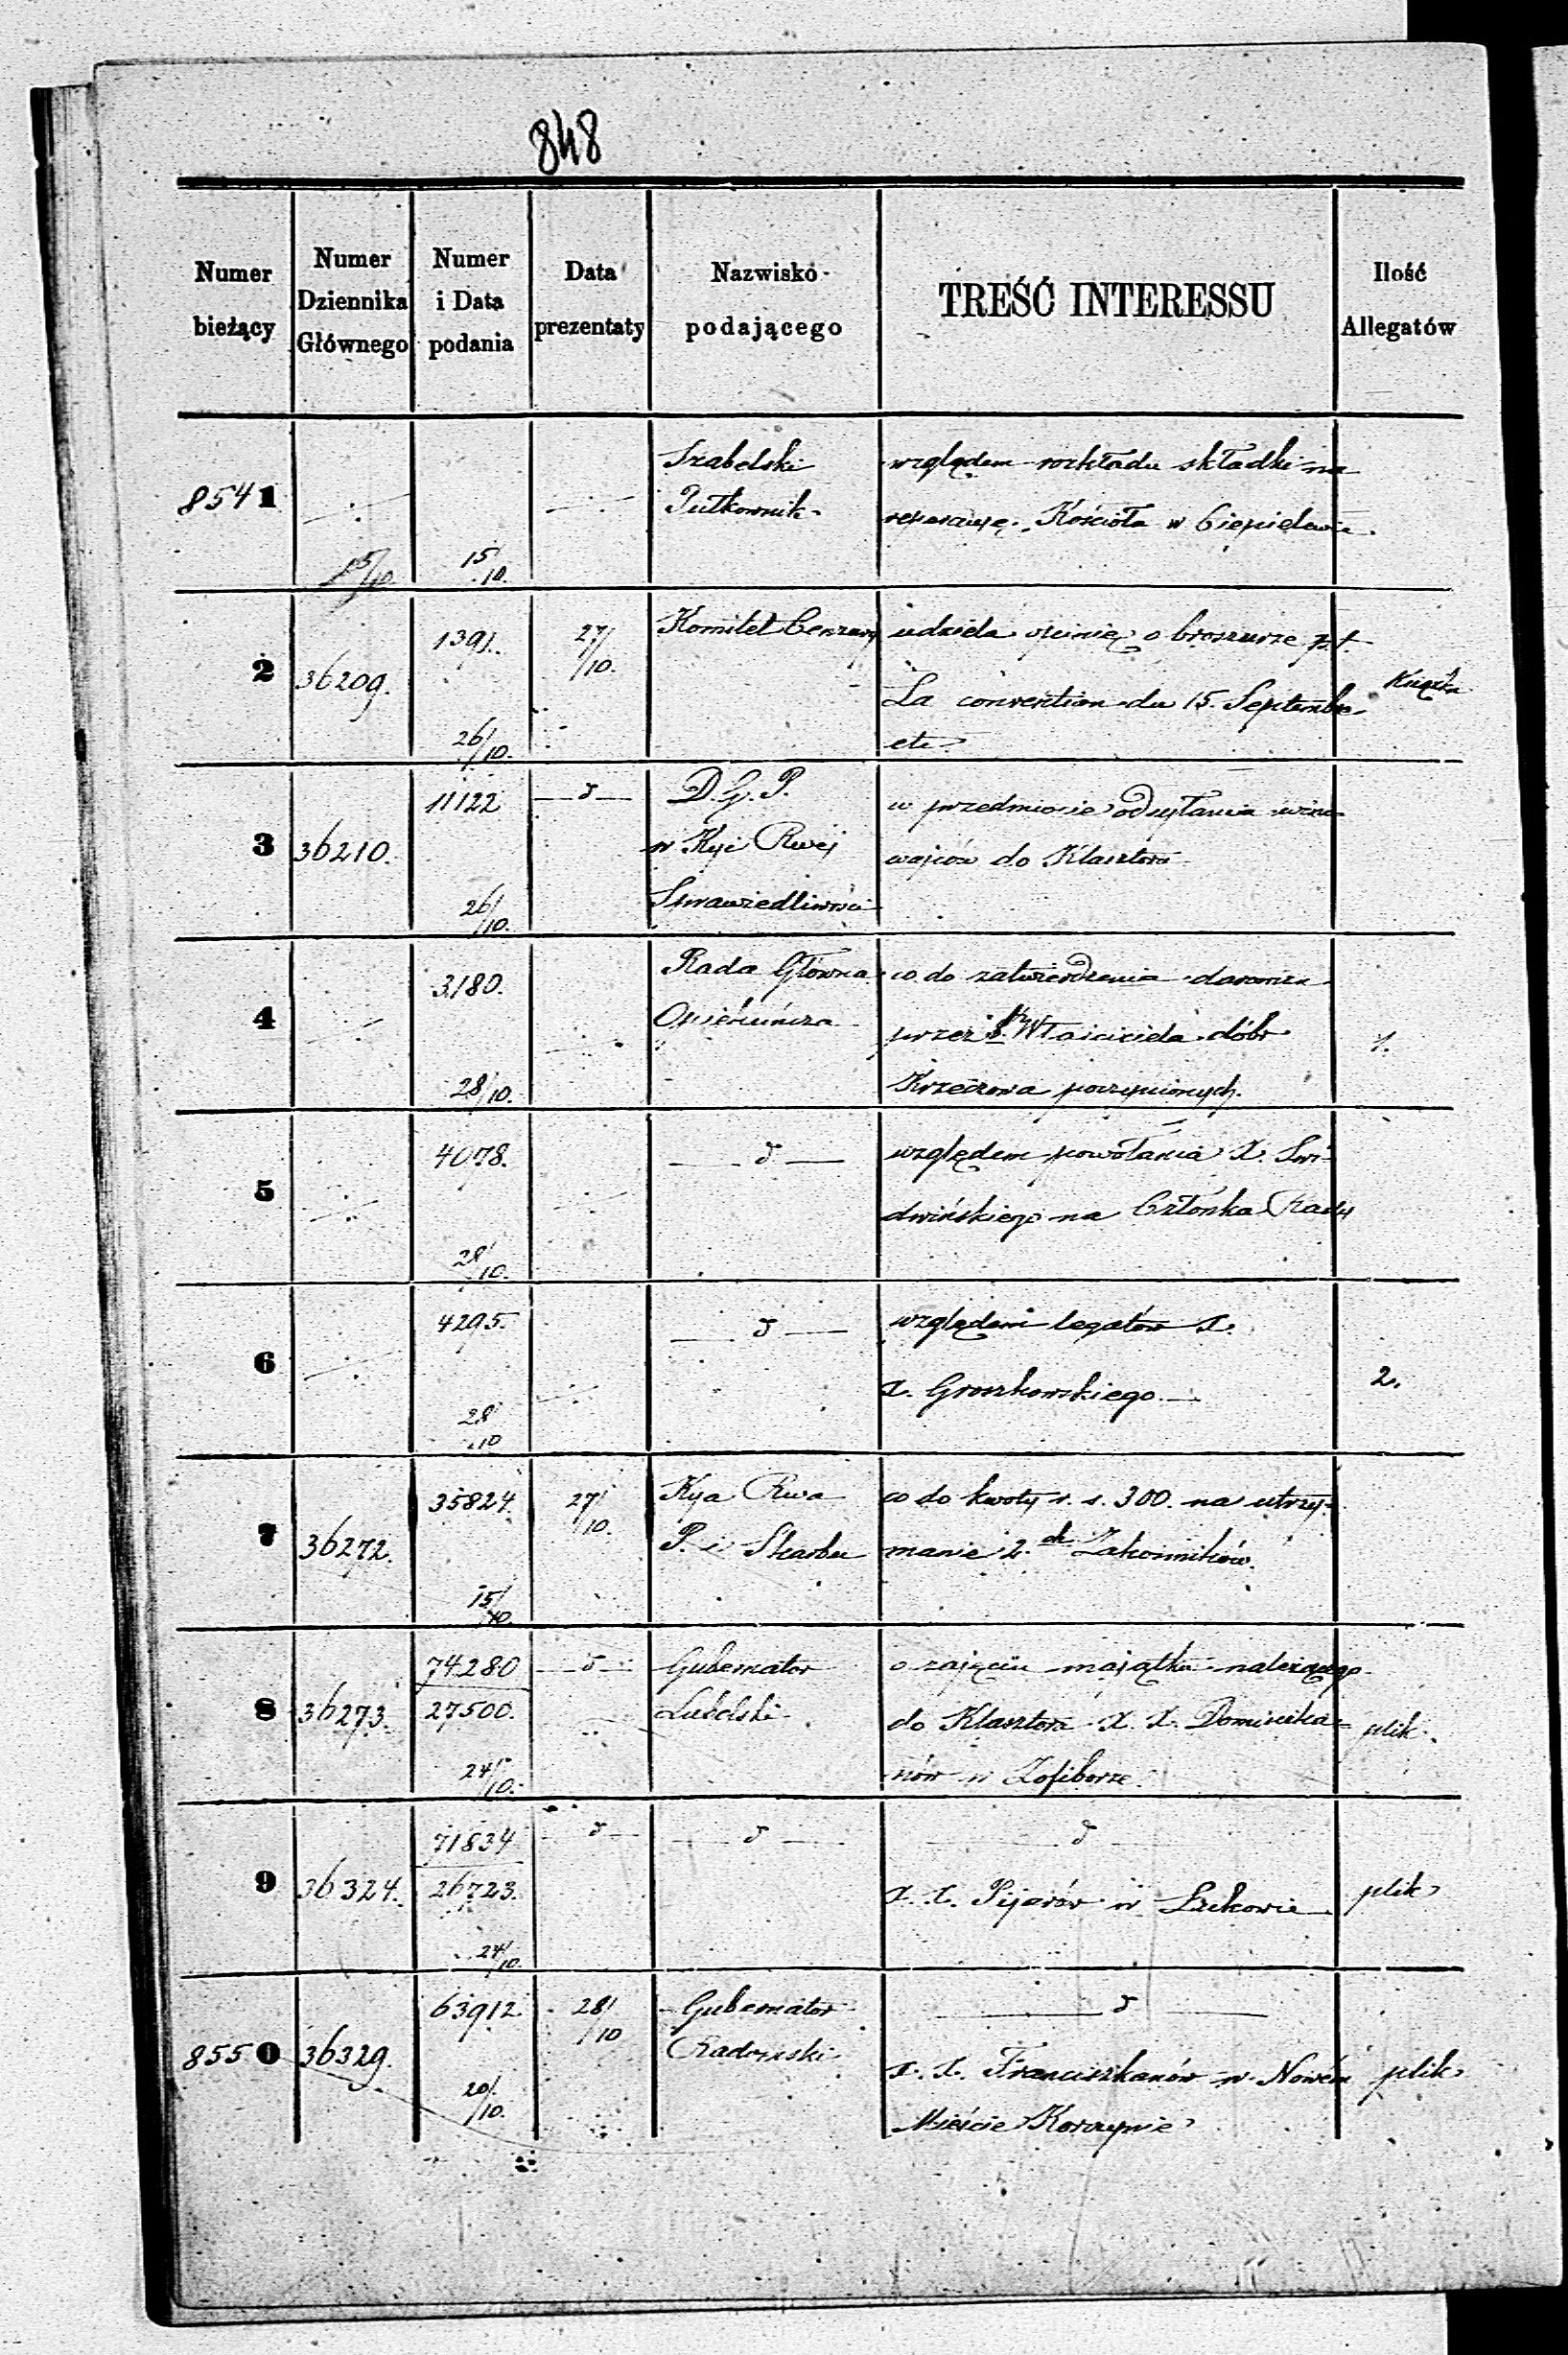 848
Numer bieżący
Numer Dziennika Głównego
Numer i Data podania
Data prezentaty
Nazwisko podającego
TREŚĆ INTERESSU
Ilość Allegatów
8541
15/10.
15/10.
Szabelski
Pułkownik.
względem rozkładu składki na
reparacyę Kościoła w Ciepielowie.
2
36209.
1391.
26/10.
27/10.
Komitet Cenzury
udziela opinię o broszurze p.t.
La convention du 15. Septembre
etc.
Książka
3
36210.
11122
26/10.
— d —
D. G. P.
w Kyi Rwéj
Sprawiedliwości
w przedmiocie odsyłania wino
wajców do Klasztoru
4
3180.
28/10.
Rada Główna
Opiekuńcza
co do zatwierdzenia darowizn
przez Właściciela dóbr
Krzeczowa poczynionych.
1.
5
4078.
28/10.
— d —
względem powołania X. Świ-
dwińskiego na Członka Rady
6
4295.
28/10
— d —
względem legatów X.
X. Groszkowskiego
2.
7
36272.
35824.
15/10.
27/10.
Kya Rwa
P. i Skarbu
co do kwoty r. s. 300. na utrzy-
manie 2.ch Zakonników.
8
36273.
74280
27500.
24/10.
— d —
Gubernator
Lubelski
o zajęciu majątku należącego
do Klasztoru X. X. Dominika-
nów w Zofiborze.
plik.
9
36324.
71834
26723.
24/10.
— d —
— d —
— d —
X. X. Pijarów w Łukowie
plik
8550
36329.
63912.
20/10.
28/10
Gubernator
Radomski
— d —
X. X. Franciszkanów w Nowém
Mieście Korczynie
plik